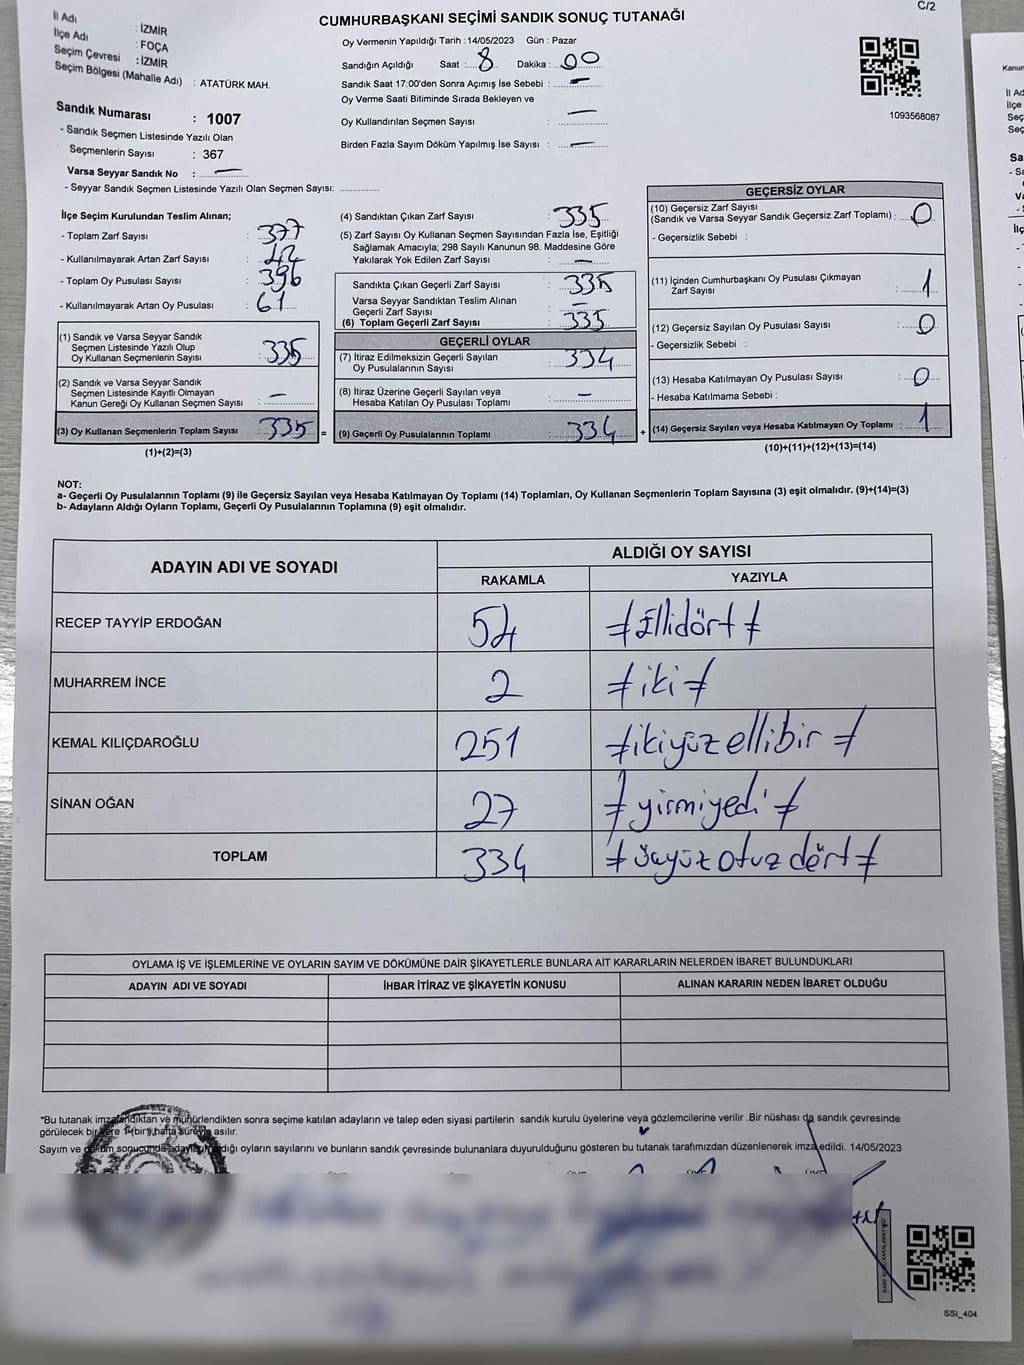 C/2
CUMHURBAŞKANI SEÇİMİ SANDIK SONUÇ TUTANAĞI
İl Adı : İZMİR
İlçe Adı : FOÇA
Seçim Çevresi : İZMİR
Seçim Bölgesi (Mahalle Adı) : ATATÜRK MAH.
Oy Vermenin Yapıldığı Tarih : 14/05/2023 Gün : Pazar
Sandığın Açıldığı Saat :....8 Dakika :..00
Sandık Saat 17:00'den Sonra Açımış İse Sebebi : —
Oy Verme Saati Bitiminde Sırada Bekleyen ve
Oy Kullandırılan Seçmen Sayısı : —
Birden Fazla Sayım Döküm Yapılmış İse Sayısı : —
1093568087
Sandık Numarası : 1007
- Sandık Seçmen Listesinde Yazılı Olan
Seçmenlerin Sayısı : 367
Varsa Seyyar Sandık No : —
- Seyyar Sandık Seçmen Listesinde Yazılı Olan Seçmen Sayısı: ..............
İlçe Seçim Kurulundan Teslim Alınan;
- Toplam Zarf Sayısı : 377
- Kullanılmayarak Artan Zarf Sayısı : 42
- Toplam Oy Pusulası Sayısı : 396
- Kullanılmayarak Artan Oy Pusulası : 61
(1) Sandık ve Varsa Seyyar Sandık
Seçmen Listesinde Yazılı Olup
Oy Kullanan Seçmenlerin Sayısı : 335
(2) Sandık ve Varsa Seyyar Sandık
Seçmen Listesinde Kayıtlı Olmayan
Kanun Gereği Oy Kullanan Seçmen Sayısı : —
(3) Oy Kullanan Seçmenlerin Toplam Sayısı : 335 =
(1)+(2)=(3)
(4) Sandıktan Çıkan Zarf Sayısı : 335
(5) Zarf Sayısı Oy Kullanan Seçmen Sayısından Fazla İse, Eşitliği
Sağlamak Amacıyla; 298 Sayılı Kanunun 98. Maddesine Göre
Yakılarak Yok Edilen Zarf Sayısı : —
Sandıkta Çıkan Geçerli Zarf Sayısı : 335
Varsa Seyyar Sandıktan Teslim Alınan
Geçerli Zarf Sayısı : —
(6) Toplam Geçerli Zarf Sayısı : 335
GEÇERLİ OYLAR
(7) İtiraz Edilmeksizin Geçerli Sayılan
Oy Pusulalarının Sayısı : 334
(8) İtiraz Üzerine Geçerli Sayılan veya
Hesaba Katılan Oy Pusulası Toplamı : —
(9) Geçerli Oy Pusulalarının Toplamı : 334 +
GEÇERSİZ OYLAR
(10) Geçersiz Zarf Sayısı
(Sandık ve Varsa Seyyar Sandık Geçersiz Zarf Toplamı) : 0
- Geçersizlik Sebebi :
(11) İçinden Cumhurbaşkanı Oy Pusulası Çıkmayan
Zarf Sayısı : 1
(12) Geçersiz Sayılan Oy Pusulası Sayısı : 0
- Geçersizlik Sebebi :
(13) Hesaba Katılmayan Oy Pusulası Sayısı : 0
- Hesaba Katılmama Sebebi :
(14) Geçersiz Sayılan veya Hesaba Katılmayan Oy Toplamı : 1
(10)+(11)+(12)+(13)=(14)
NOT:
a- Geçerli Oy Pusulalarının Toplamı (9) ile Geçersiz Sayılan veya Hesaba Katılmayan Oy Toplamı (14) Toplamları, Oy Kullanan Seçmenlerin Toplam Sayısına (3) eşit olmalıdır. (9)+(14)=(3)
b- Adayların Aldığı Oyların Toplamı, Geçerli Oy Pusulalarının Toplamına (9) eşit olmalıdır.
ADAYIN ADI VE SOYADI ALDIĞI OY SAYISI
RAKAMLA YAZIYLA
RECEP TAYYİP ERDOĞAN 54 ≠ Ellidört ≠
MUHARREM İNCE 2 ≠ iki ≠
KEMAL KILIÇDAROĞLU 251 ≠ ikiyüzellibir ≠
SİNAN OĞAN 27 ≠ yirmiyedi ≠
TOPLAM 334 ≠ üçyüzotuzdört ≠
OYLAMA İŞ VE İŞLEMLERİNE VE OYLARIN SAYIM VE DÖKÜMÜNE DAİR ŞİKAYETLERLE BUNLARA AİT KARARLARIN NELERDEN İBARET BULUNDUKLARI
ADAYIN ADI VE SOYADI İHBAR İTİRAZ VE ŞİKAYETİN KONUSU ALINAN KARARIN NEDEN İBARET OLDUĞU
*Bu tutanak imzalandıktan ve mühürlendikten sonra seçime katılan adayların ve talep eden siyasi partilerin sandık kurulu üyelerine veya gözlemcilerine verilir .Bir nüshası da sandık çevresinde
görülecek bir yere 1 (bir) hafta süreyle asılır.
Sayım ve döküm sonucunda adayların aldığı oyların sayılarını ve bunların sandık çevresinde bulunanlara duyurulduğunu gösteren bu tutanak tarafımızdan düzenlenerek imza edildi. 14/05/2023
SSI_404